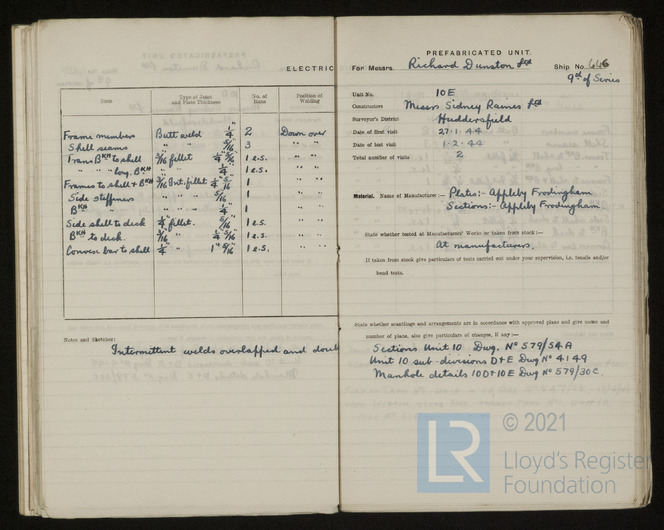 ELECTRIC
Item
Type of Joint and Plate Thickness
No. of Runs
Position of Welding
Frame members Butt weld 1/4" 2 Down over
Shell seams " " 5/16 3 "
Trans BKH to shell 3/16 fillet 1/4" 5/16" 1 e.s. "
" " long. BKH " " 1/4" 1 e.s. "
Frames to shell & BKH 3/16 Int. fillet 1/4" 5/16 1 "
Side stiffeners " " 5/16 1 "
BKH " " " 1/4" 1 "
Side shell to deck 1/4" fillet. 5/16 1 e.s. "
BKH to deck. 3/16 " 1/4" 5/16 1 e.s. "
Convex bar to shell 1/4 " 1" 5/16 1 e.s. "
Notes and Sketches:
Intermittent welds overlapped and
PREFABRICATED UNIT.
For Messrs. Richard Dunston Ltd Ship No. 646
9th of Series
Unit No. 10E
Constructors Messrs Sidney Raines Ltd
Surveyor's District Huddersfield
Date of first visit 27.1.44
Date of last visit 1.2.44
Total number of visits 2
Material. Name of Manufacturer :— Plates:- Appleby Frodingham
Sections:- Appleby Frodingham
State whether tested at Manufacturers' Works or taken from stock :—
At manufacturers.
If taken from stock give particulars of tests carried out under your supervision, i.e. tensile and/or
bend tests.
State whether scantlings and arrangements are in accordance with approved plans and give name and
number of plans, also give particulars of changes, if any :—
Sections Unit 10 Dwg. No 579/54A
Unit 10 sub-divisions D&E Dwg No 4149
Manhole details 10D&10E Dwg No 579/30C.
© 2021
LR
Lloyd's Register
Foundation